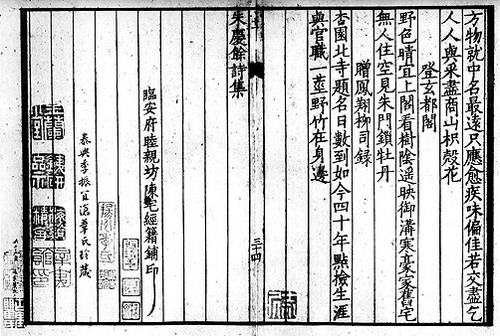 方物就中名最遠只應愈疾味偏佳若交盡乞
人人與采盡商山枳殼花
登玄都閣
野色晴宜上閣看樹陰遥映御溝寒豪家舊宅
無人住空見朱門鎖牡丹
贈鳳翔柳司録
杏園北寺題名日數到如今四十年點檢生涯
與官職一莖野竹在身邊
三十四
朱慶餘詩集
臨安府睦親坊陳宅經籍鋪印
泰興季振宜滄葦氏珍藏